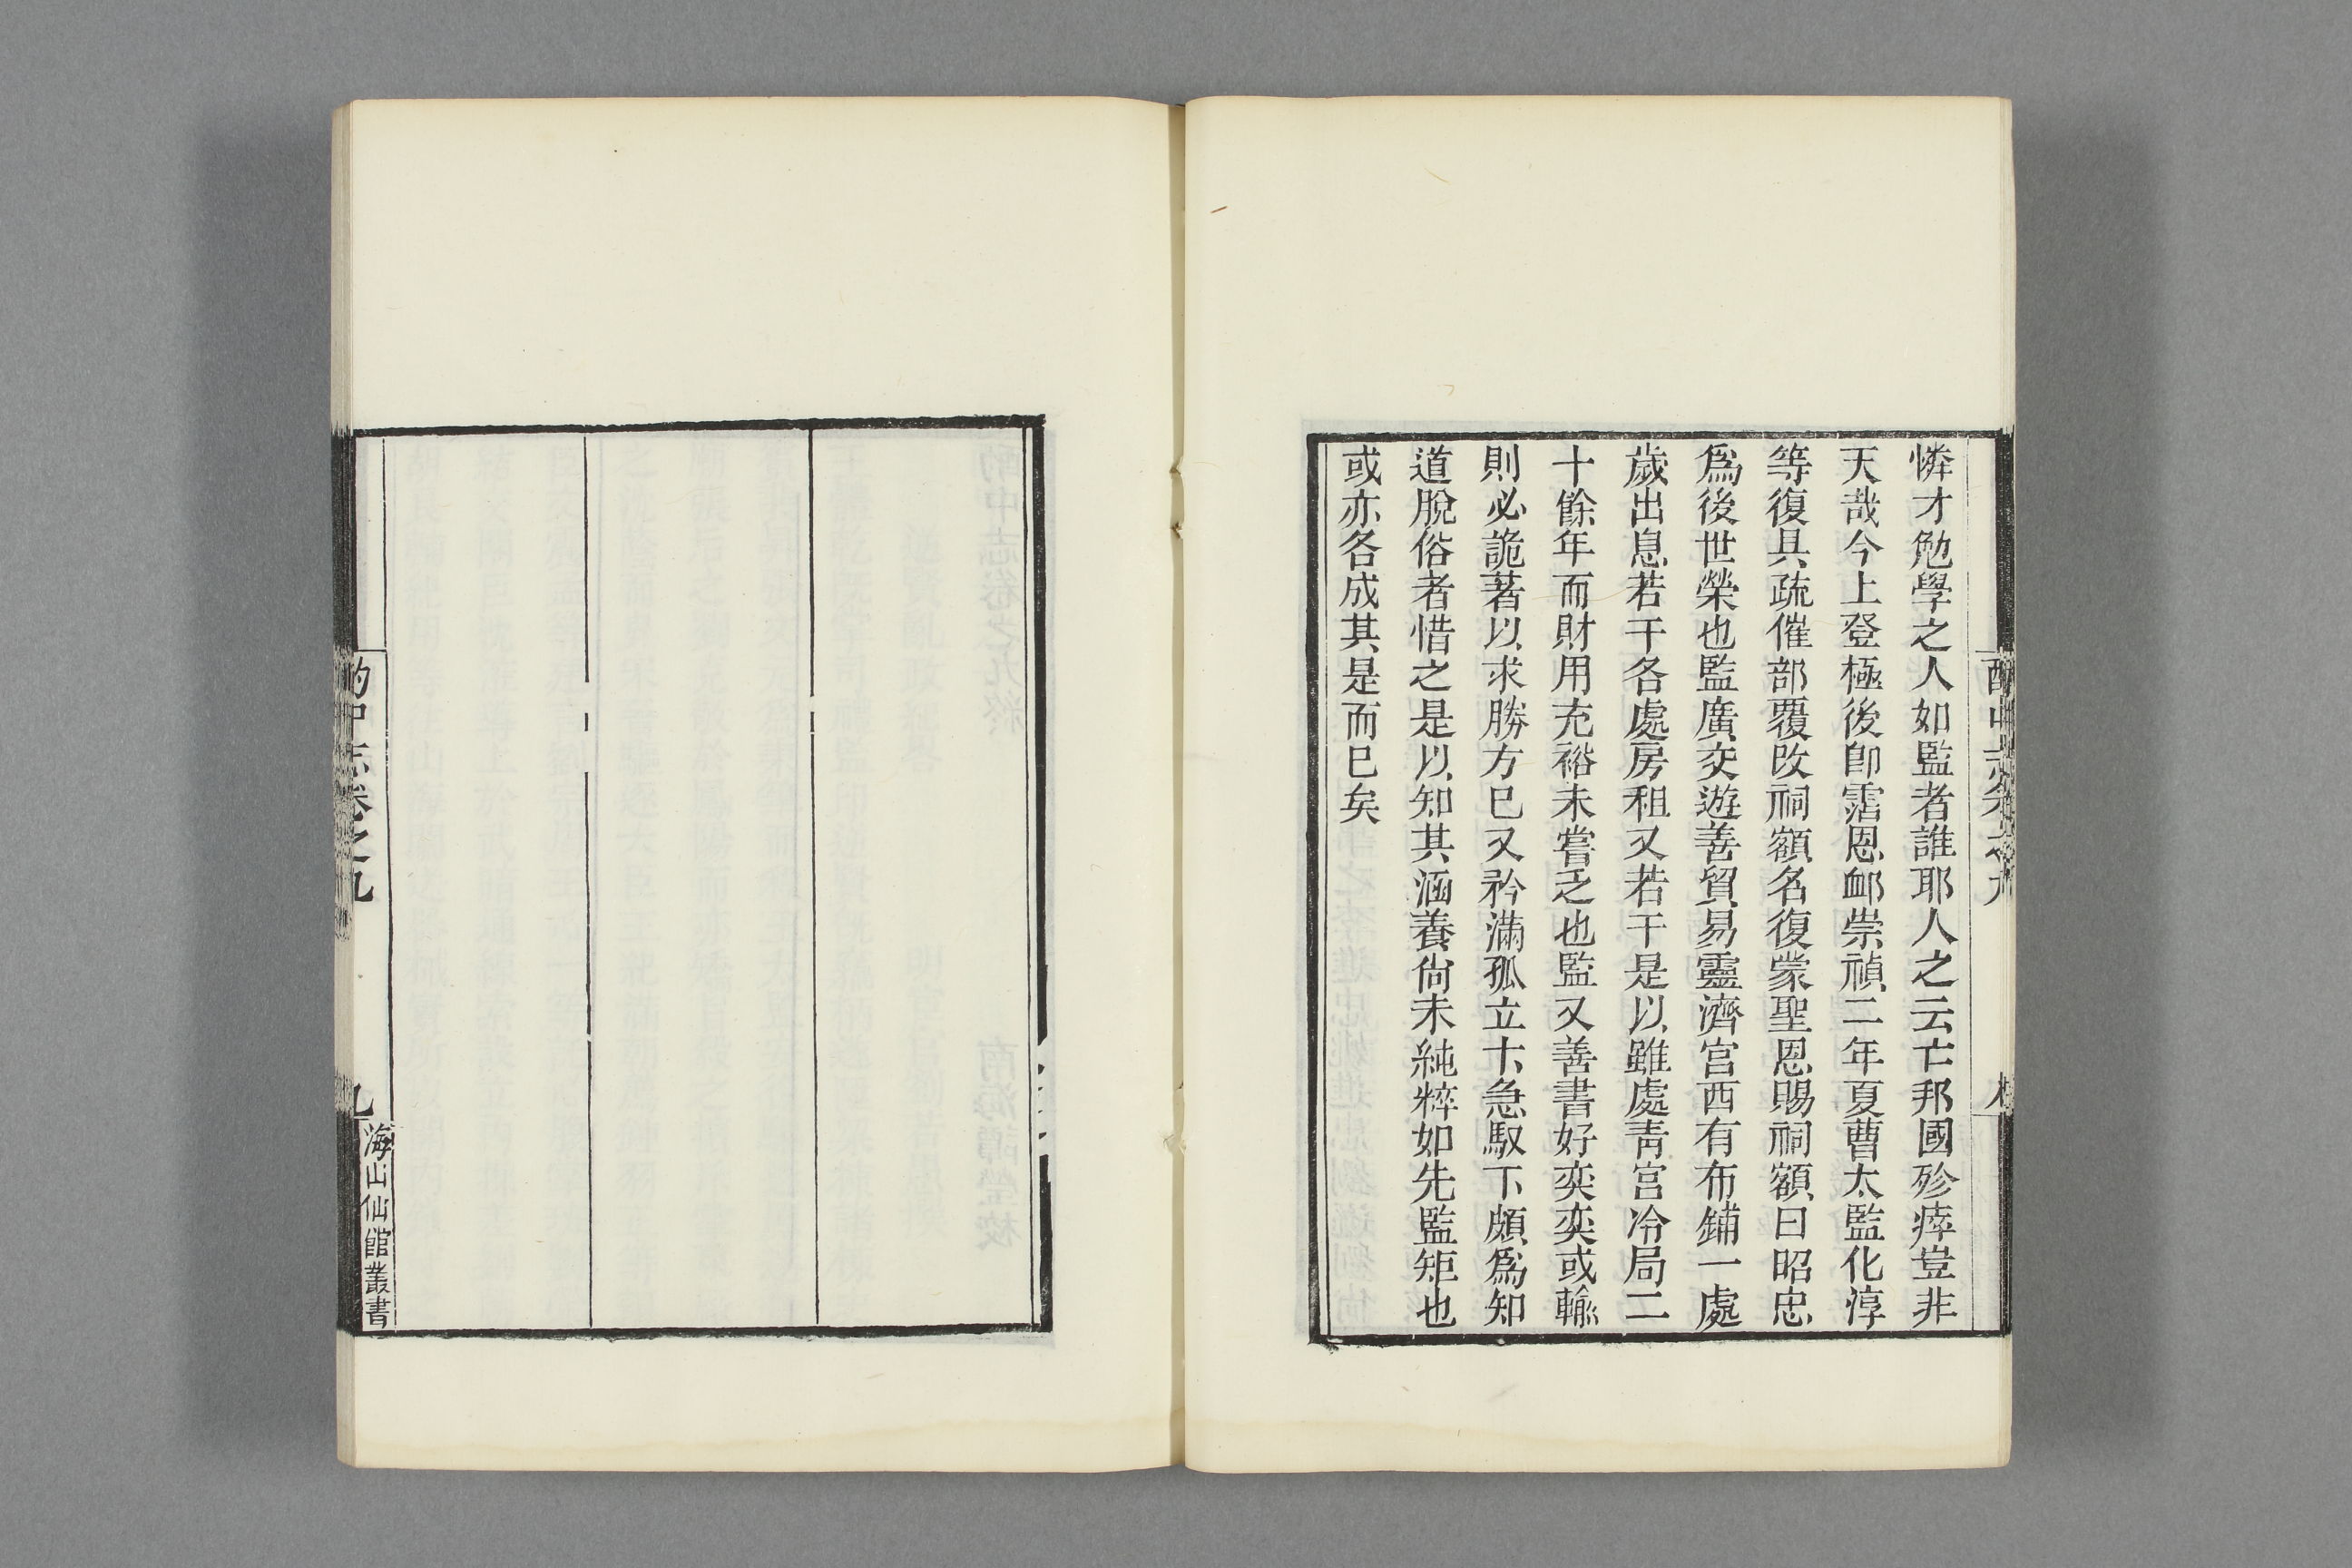 憐才勉學之人如監者誰耶人之云亡邦國殄瘁豈非
天哉今上登極後卽霑恩卹崇禎二年夏曹太監化淳
等復具疏催部覆改祠額名復蒙聖恩賜祠額曰昭忠
爲後世榮也監廣交遊善貿易靈濟宮西有布鋪一處
歲出息若干各處房租又若干是以雖處靑宮冷局二
十餘年而財用充裕未嘗乏也監又善書好奕奕或輸
則必詭著以求勝方已又矜滿孤立卞急馭下頗爲知
道脫俗者惜之是以知其涵養尙未純粹如先監矩也
或亦各成其是而已矣
酌中志卷之九
九
海山仙館叢書